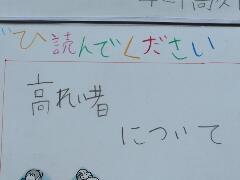 ぜひ読んでください
高れい者
について